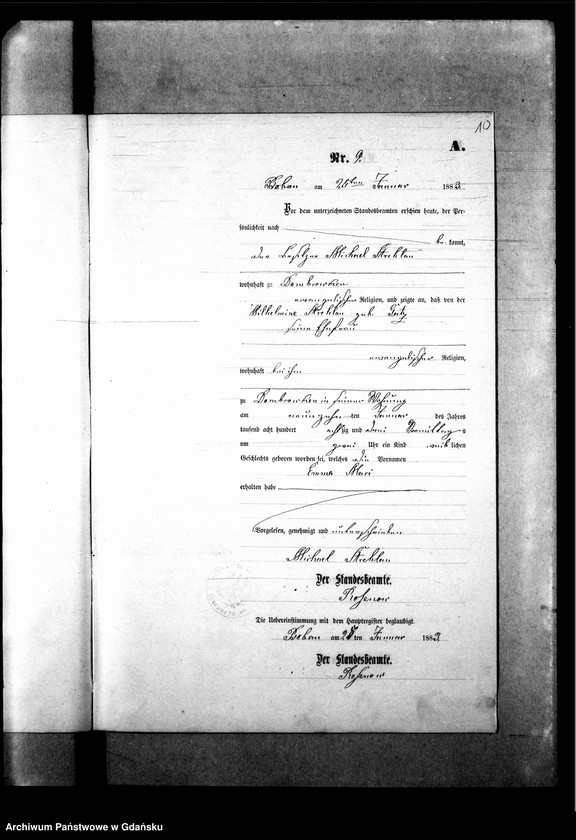 10
A.
Nr. 9.
am 25ten Januar 1883
Vor dem unterzeichneten Standesbeamten erschien heute, der Per-
sönlichkeit nach
be kannt,
der Besitzer Michael Strehlau
wohnhaft zu Dombrowken
evangelischer Religion, und zeigte an, daß von der
Wilhelmine Strehlau geb.
seine Ehefrau
evangelischer Religion,
wohnhaft bei ihm
zu Dombrowken in seiner Wohnung
am neunzehn ten Januar des Jahres
tausend acht hundert acht zig und drei Vormittag s
um zwei Uhr ein Kind weib lichen
Geschlechts geboren worden sei, welches die Vornamen
Emma
erhalten habe
Vorgelesen, genehmigt und unterschrieben
Michael Strehlau
Der Standesbeamte.
Rosenow
Die Uebereinstimmung mit dem Hauptregister beglaubigt.
am 25 ten Januar 1883.
Der Standesbeamte.
Rosenow
Archiwum Państwowe w Gdańsku